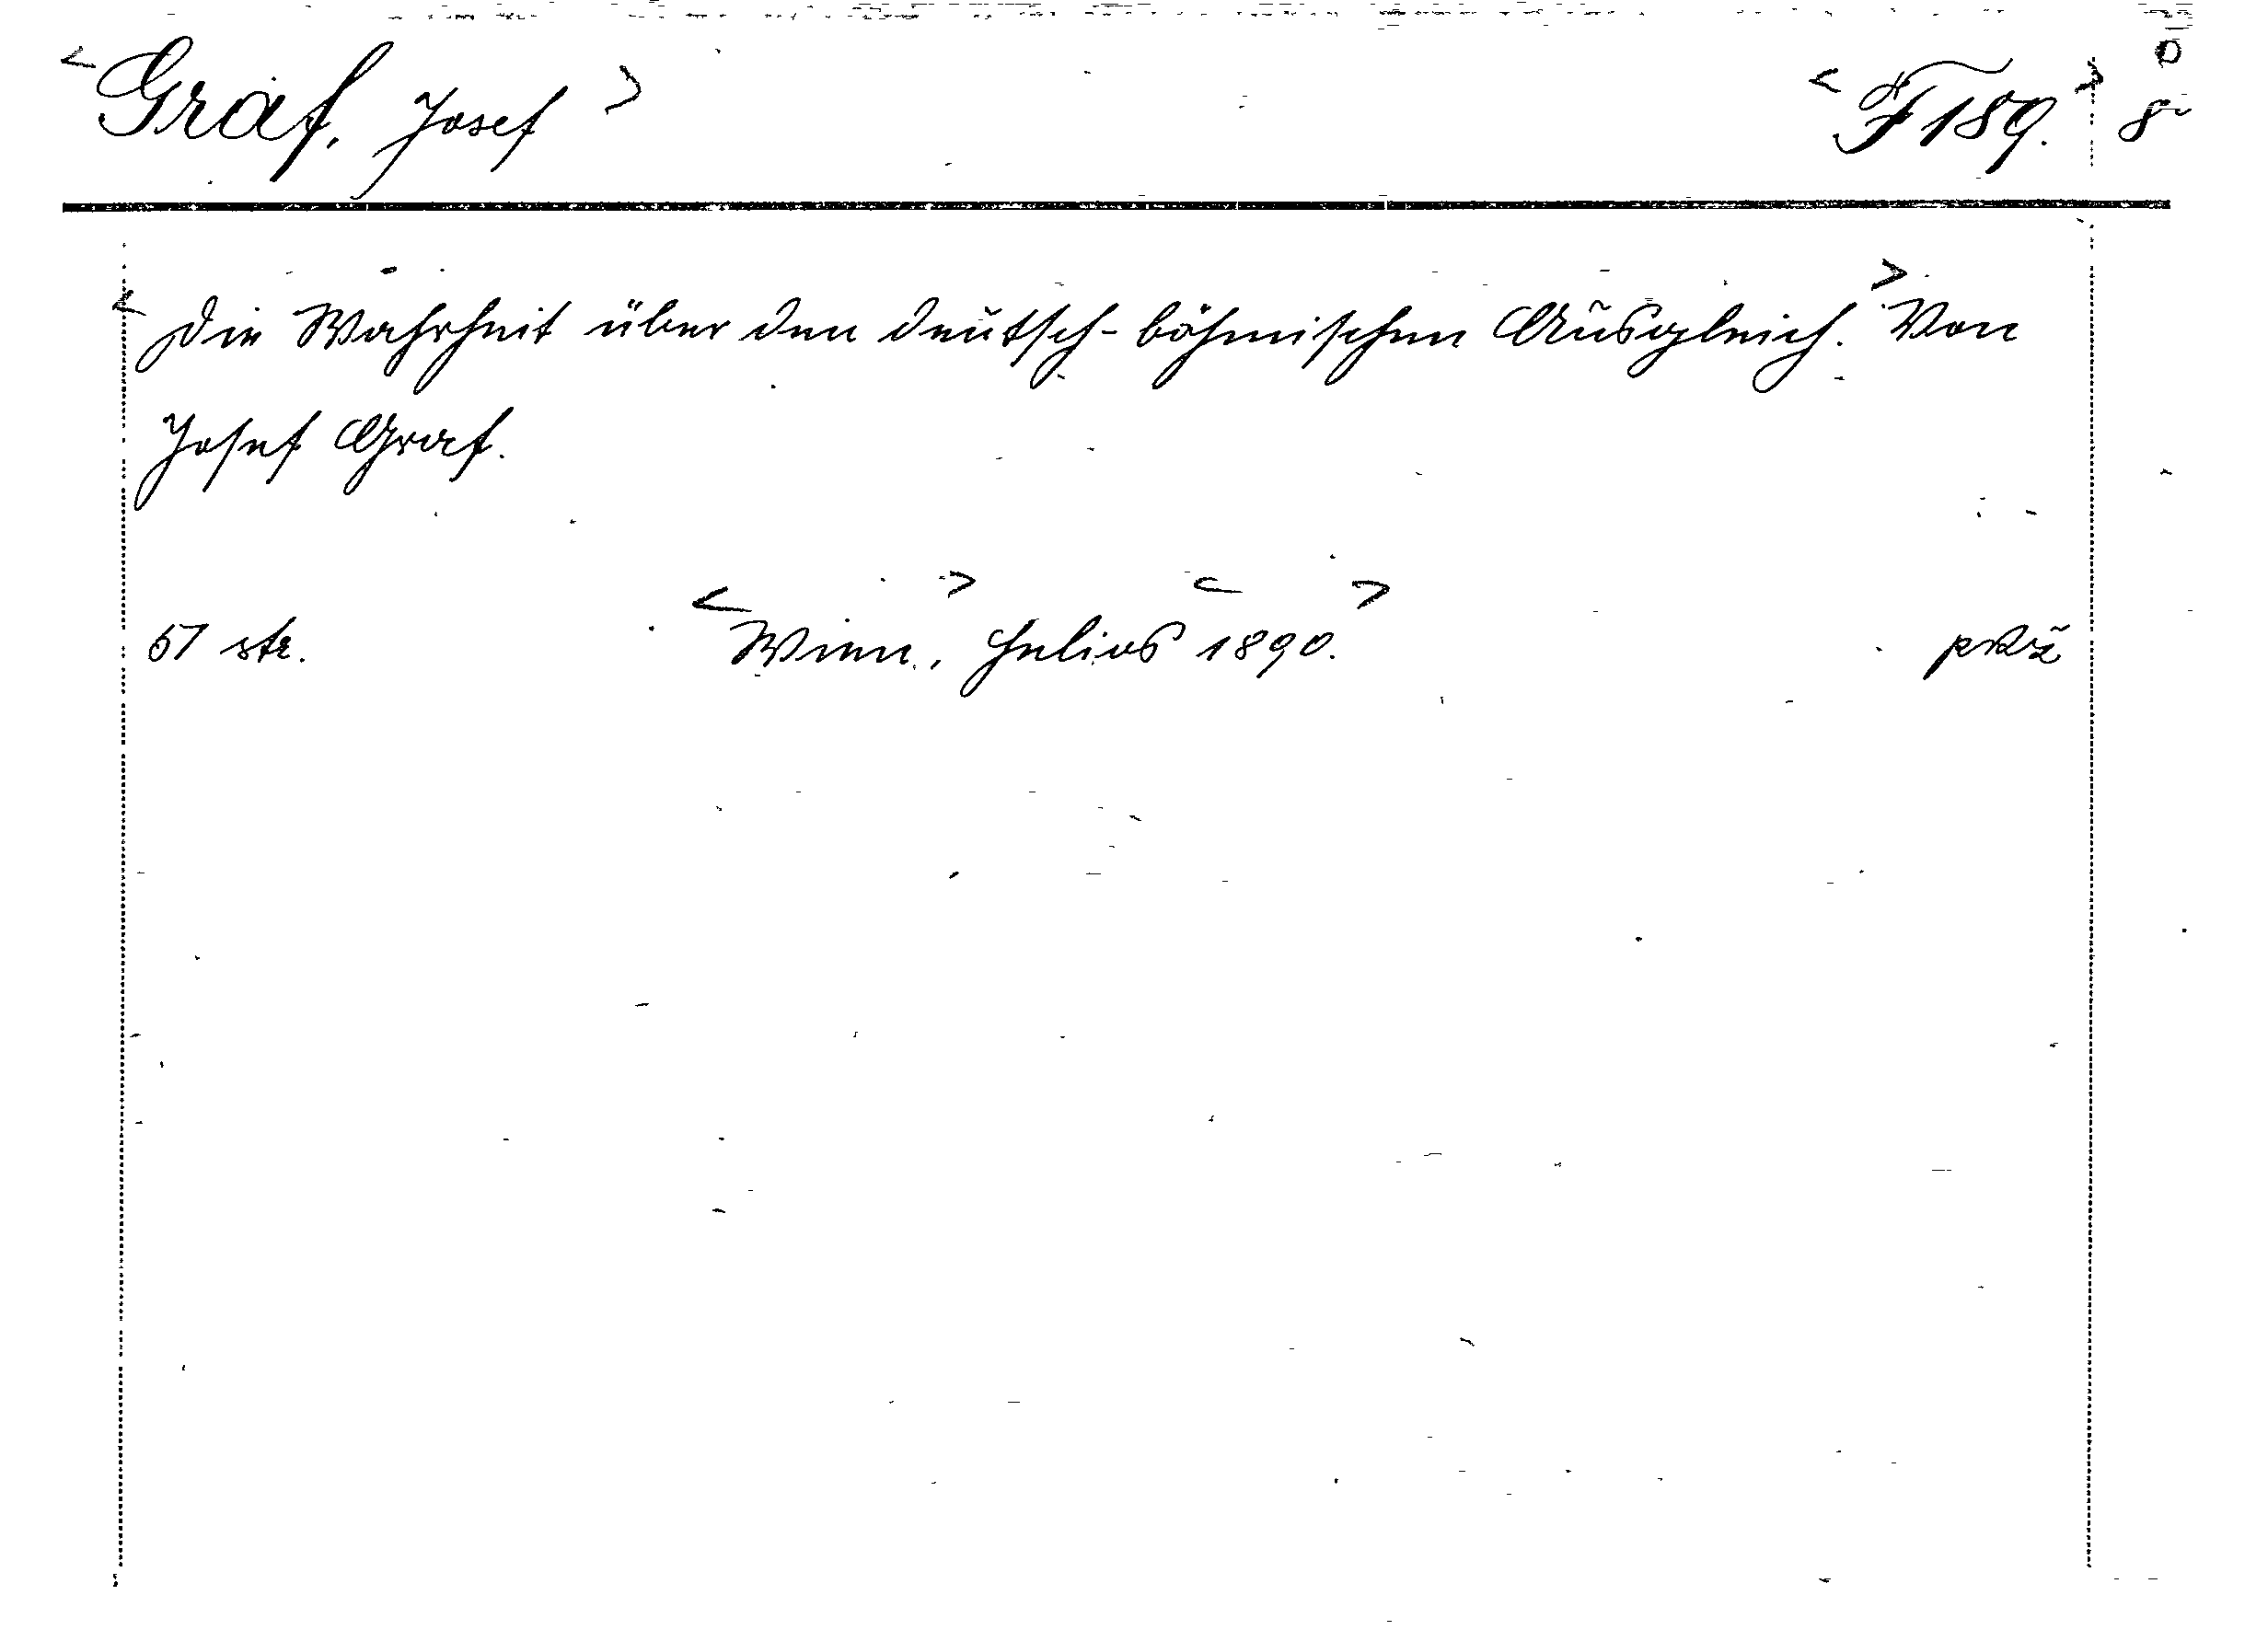 <Graf, Josef> <F 189.> 8°
<Die Wahrheit über den deutsch-böhmischen Ausgleich.> Von
Josef Graf.
57 str. <Wien>, Helios <1890.>